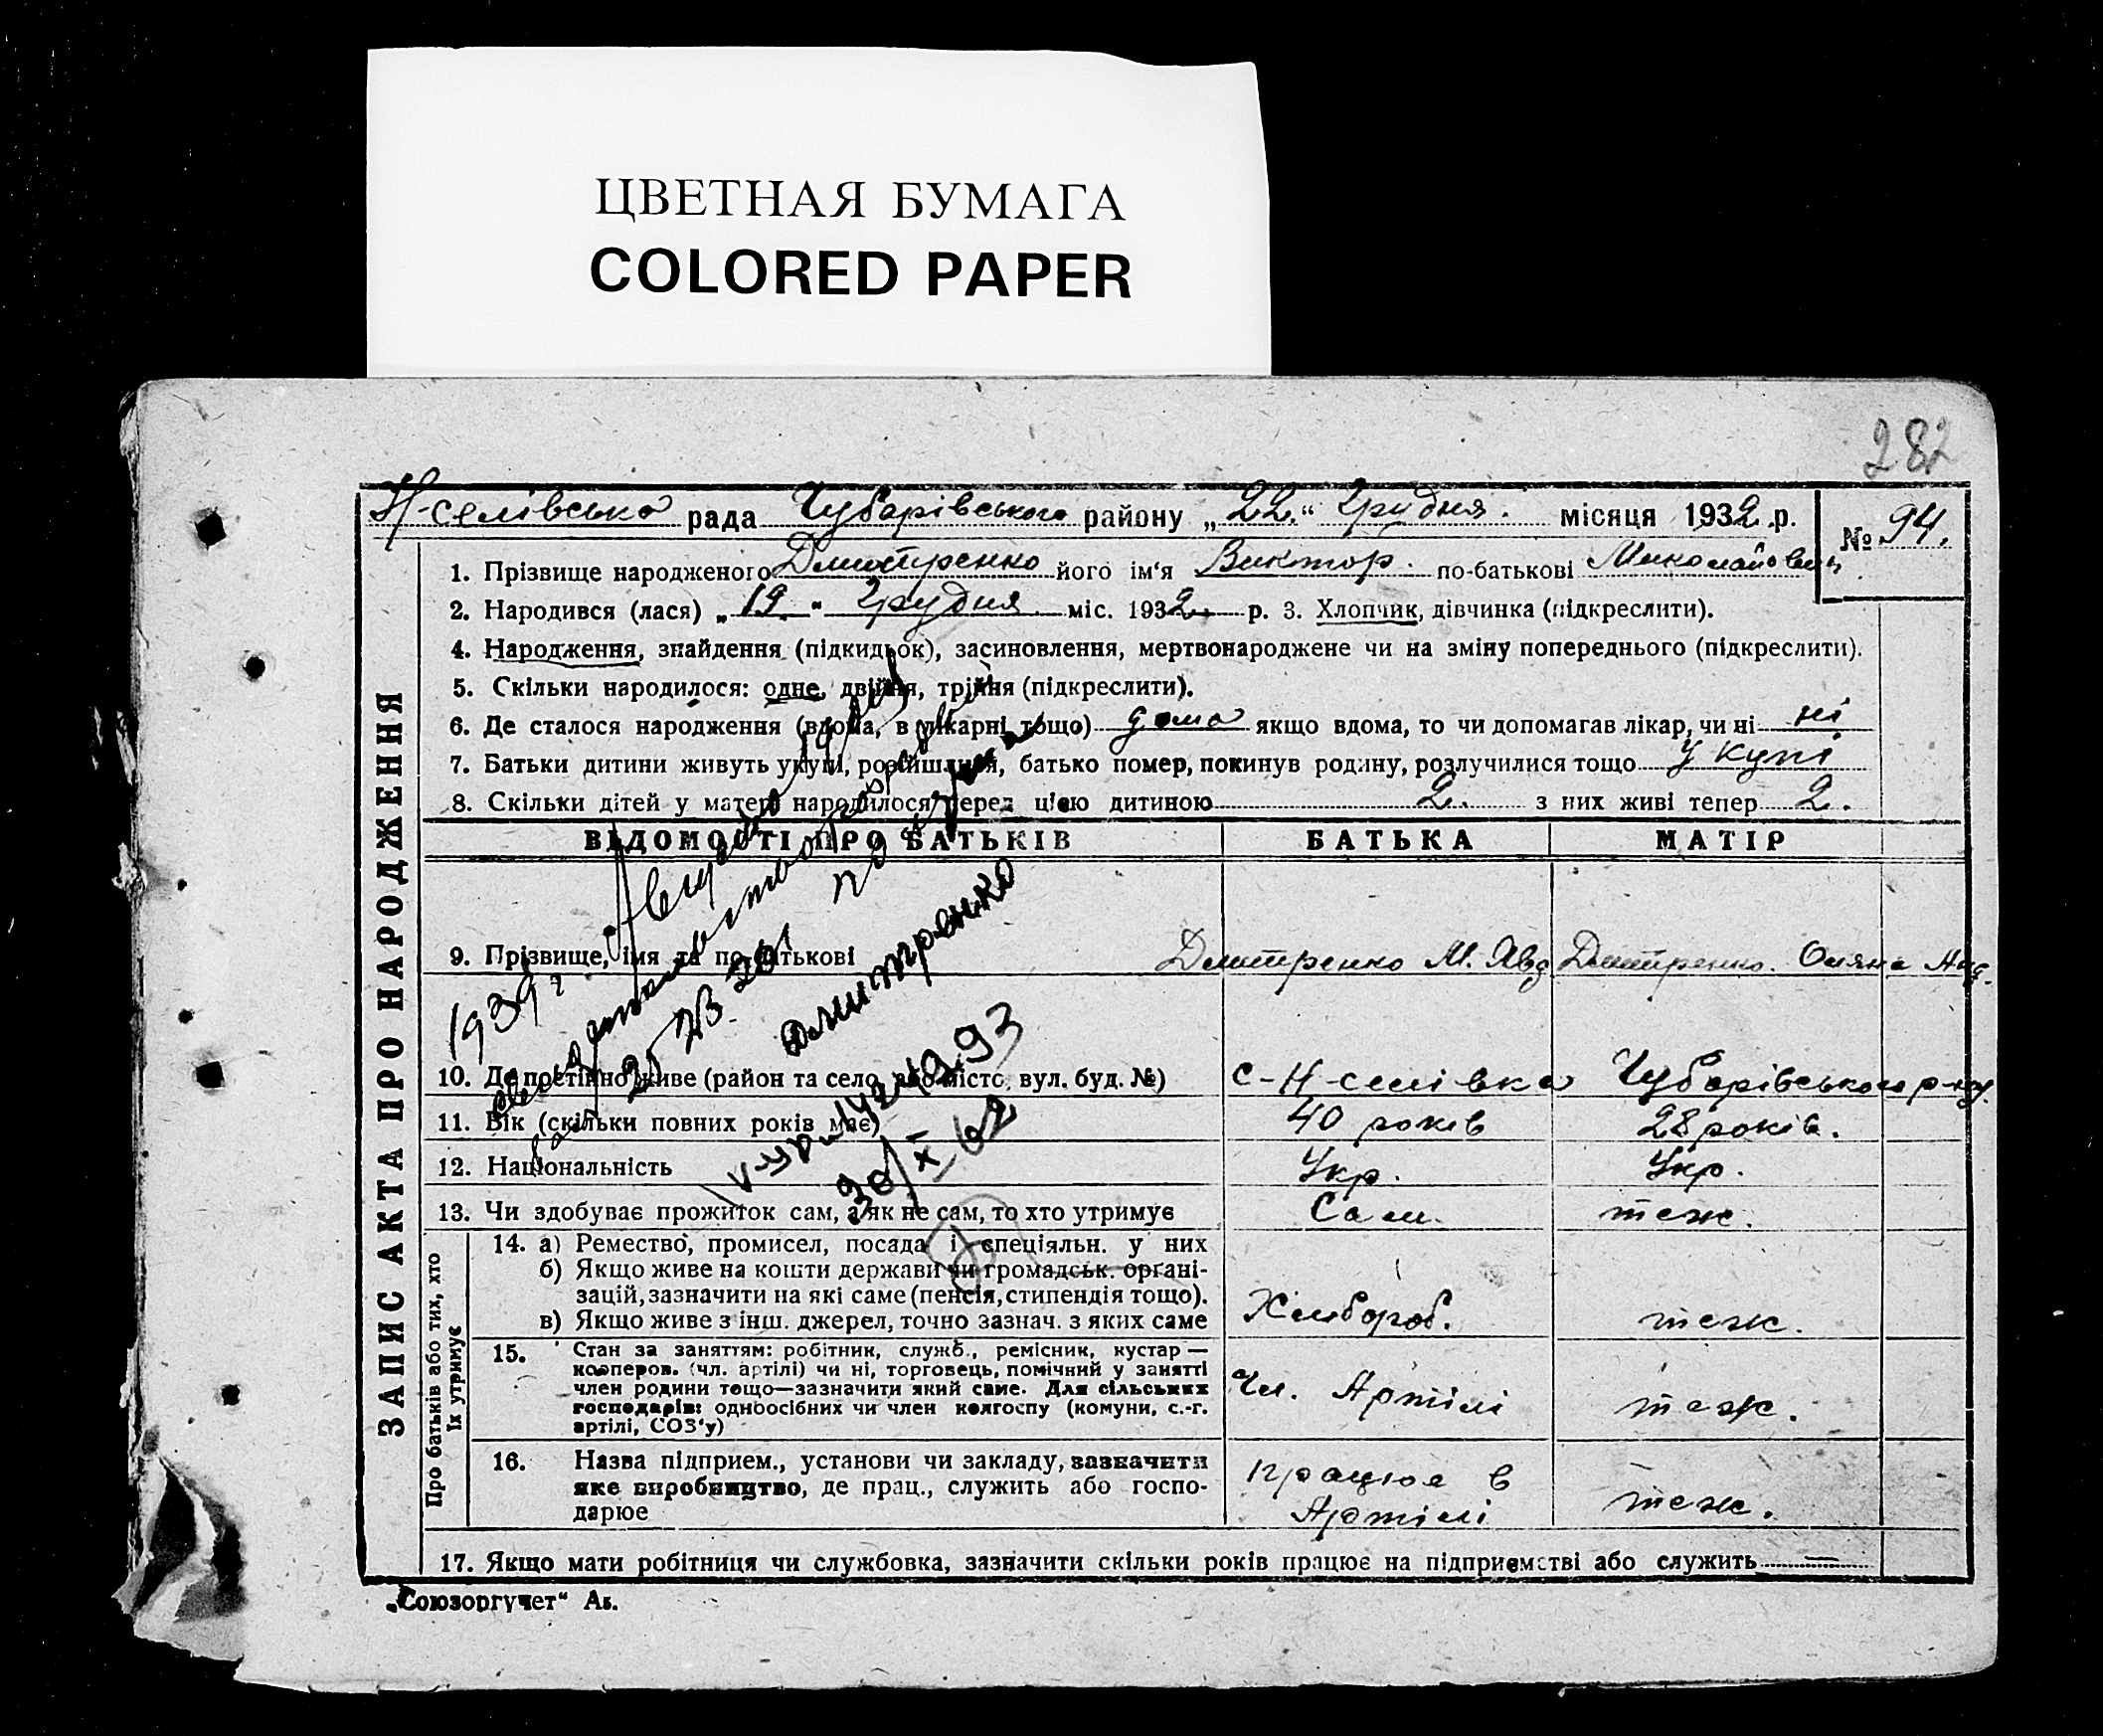 ЦВЕТНАЯ БУМАГА
COLORED PAPER
282
Н-селівська рада Чубарівського району „22.“ Грудня. місяця 1932.р.
№ 94.
1. Прізвище народженого Дмитренко його ім‘я Виктор. по-батькові Миколайович
2. Народився (лася) „19.“ Грудня міс. 1932. р. 3. Хлопчик, дівчинка (підкреслити).
4. Народження, знайдення (підкидьок), засиновлення, мертвонароджене чи на зміну попереднього (підкреслити).
5. Скільки народилося: одне, двійня, трійня (підкреслити).
6. Де сталося народження (вдома, в лікарні, тощо) дома якщо вдома, то чи допомагав лікар, чи ні ні
7. Батьки дитини живуть укупі, розійшлися, батько помер, покинув родину, розлучилися тощо у купі
8. Скільки дітей у матері народилося перед цією дитиною 2. з них живі тепер 2.
ВІДОМОСТІ ПРО БАТЬКІВ БАТЬКА МАТІР
9. Прізвище, імя та по-батькові Дмитренко М. Явд Дмитренко. Оляна
10. Де постійно живе (район та село, або місто, вул. буд. №) с-Н-селівка Чубарівського р-ну.
11. Вік (скільки повних років має) 40 років 28 років.
12. Національність Укр. Укр.
13. Чи здобуває прожиток сам, а як не сам, то хто утримує Сам. теж.
14. а) Ремество, промисел, посада і спеціяльн. у них
б) Якщо живе на кошти держави чи громадськ. органі-
зацій, зазначити на які саме (пенсія, стипендія тощо).
в) Якщо живе з інш. джерел, точно зазнач. з яких саме Хлибороб. теж.
15. Стан за заняттям: робітник, служб., ремісник, кустар —
кооперов. (чл. артілі) чи ні, торговець, помічний у занятті
член родини тощо—зазначити який саме. Для сільських
господарів: одноосібних чи член колгоспу (комуни, с.-г.
артілі, СОЗ‘у) Чл. Артілі теж.
16. Назва підприєм., установи чи закладу, зазначити
яке виробництво, де прац., служить або госпо-
дарює працює в Артілі теж.
17. Якщо мати робітниця чи службовка, зазначити скільки років працює на підприємстві або служить —
ЗАПИС АКТА ПРО НАРОДЖЕННЯ
Про батьків або тих, хто
їх утримує
1939
Дмитренко
30/XI 62
„Союзоргучет“